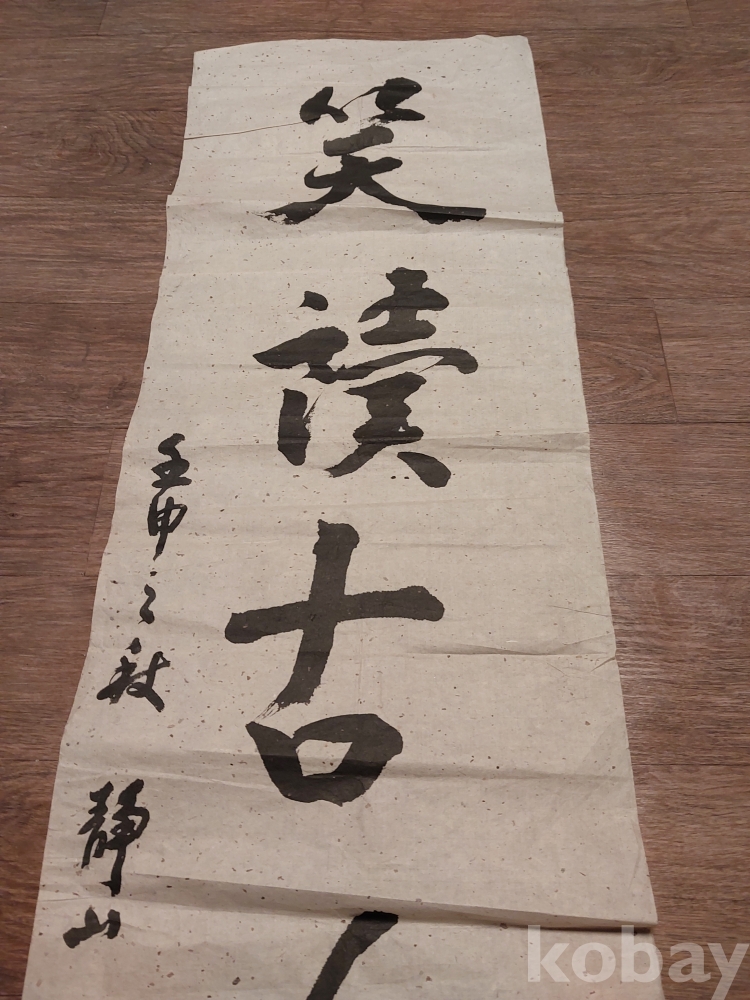 笑讀古
壬申之秋 靜山
kobay